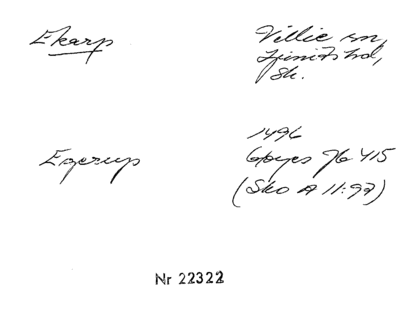 Ekarp
Villie sn,
Ljunits hd,
Sk.
1496
Egerup
76 415
(Sko A 11:93)
Nr 22322